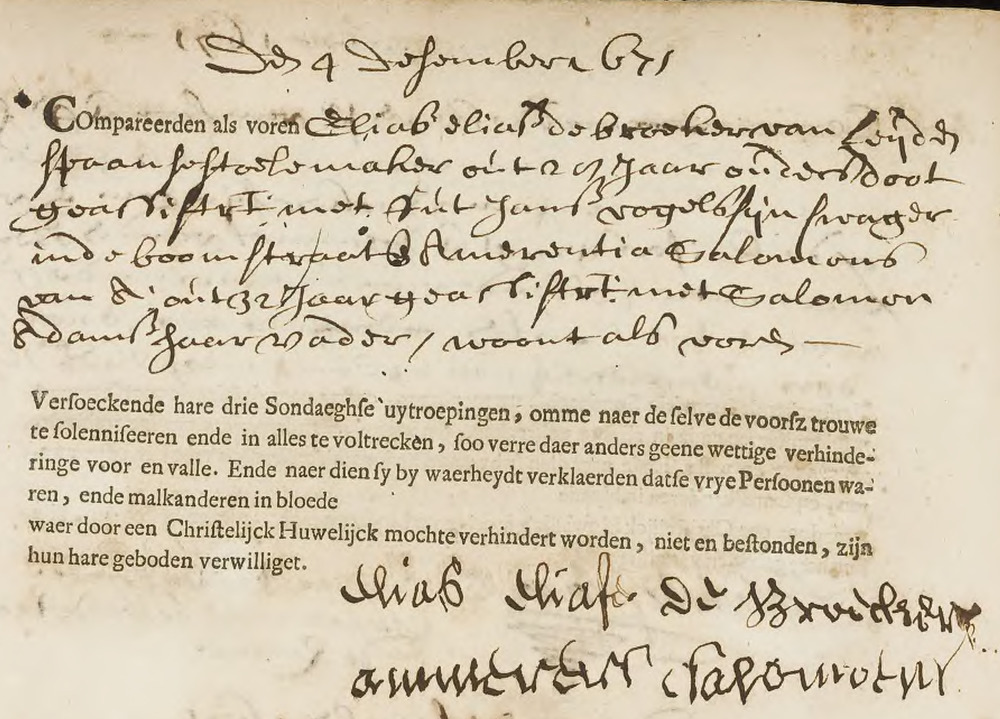 Den 4 desember 1671
Compareerden als voren Elias eliasz de broeker van Leijden
spaansestoelemaker out 29 Jaar ouders doot
geassisteert met Jans vogels sijn swager
inde boomstraat & Amerentia Salomons
van A out 32 Jaar geassisteert met Salomon
Adamsz haar vader / woont als voren
Verſoeckende hare drie Sondaeghſe uytroepingen, omme naer de ſelve de voorſz trouwe
te ſolenniſeeren ende in alles te voltrecken, ſoo verre daer anders geene wettige verhinde-
ringe voor en valle. Ende naer dien ſy by waerheydt verklaerden datſe vrye Perſoonen wa-
ren, ende malkanderen in bloede
waer door een Chriſtelijck Huwelijck mochte verhindert worden, niet en beſtonden, zijn
hun hare geboden verwilliget.
Elias Eliasz de Broecker
Salomons